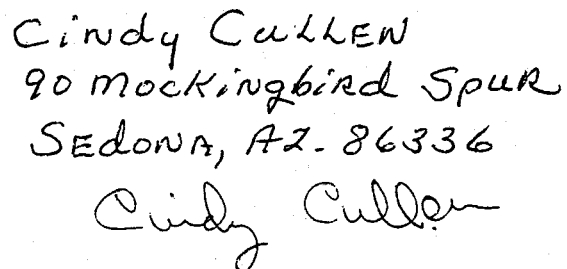 Cindy Cullen
90 Mockingbird Spur
Sedona, AZ. 86336
Cindy Cullen